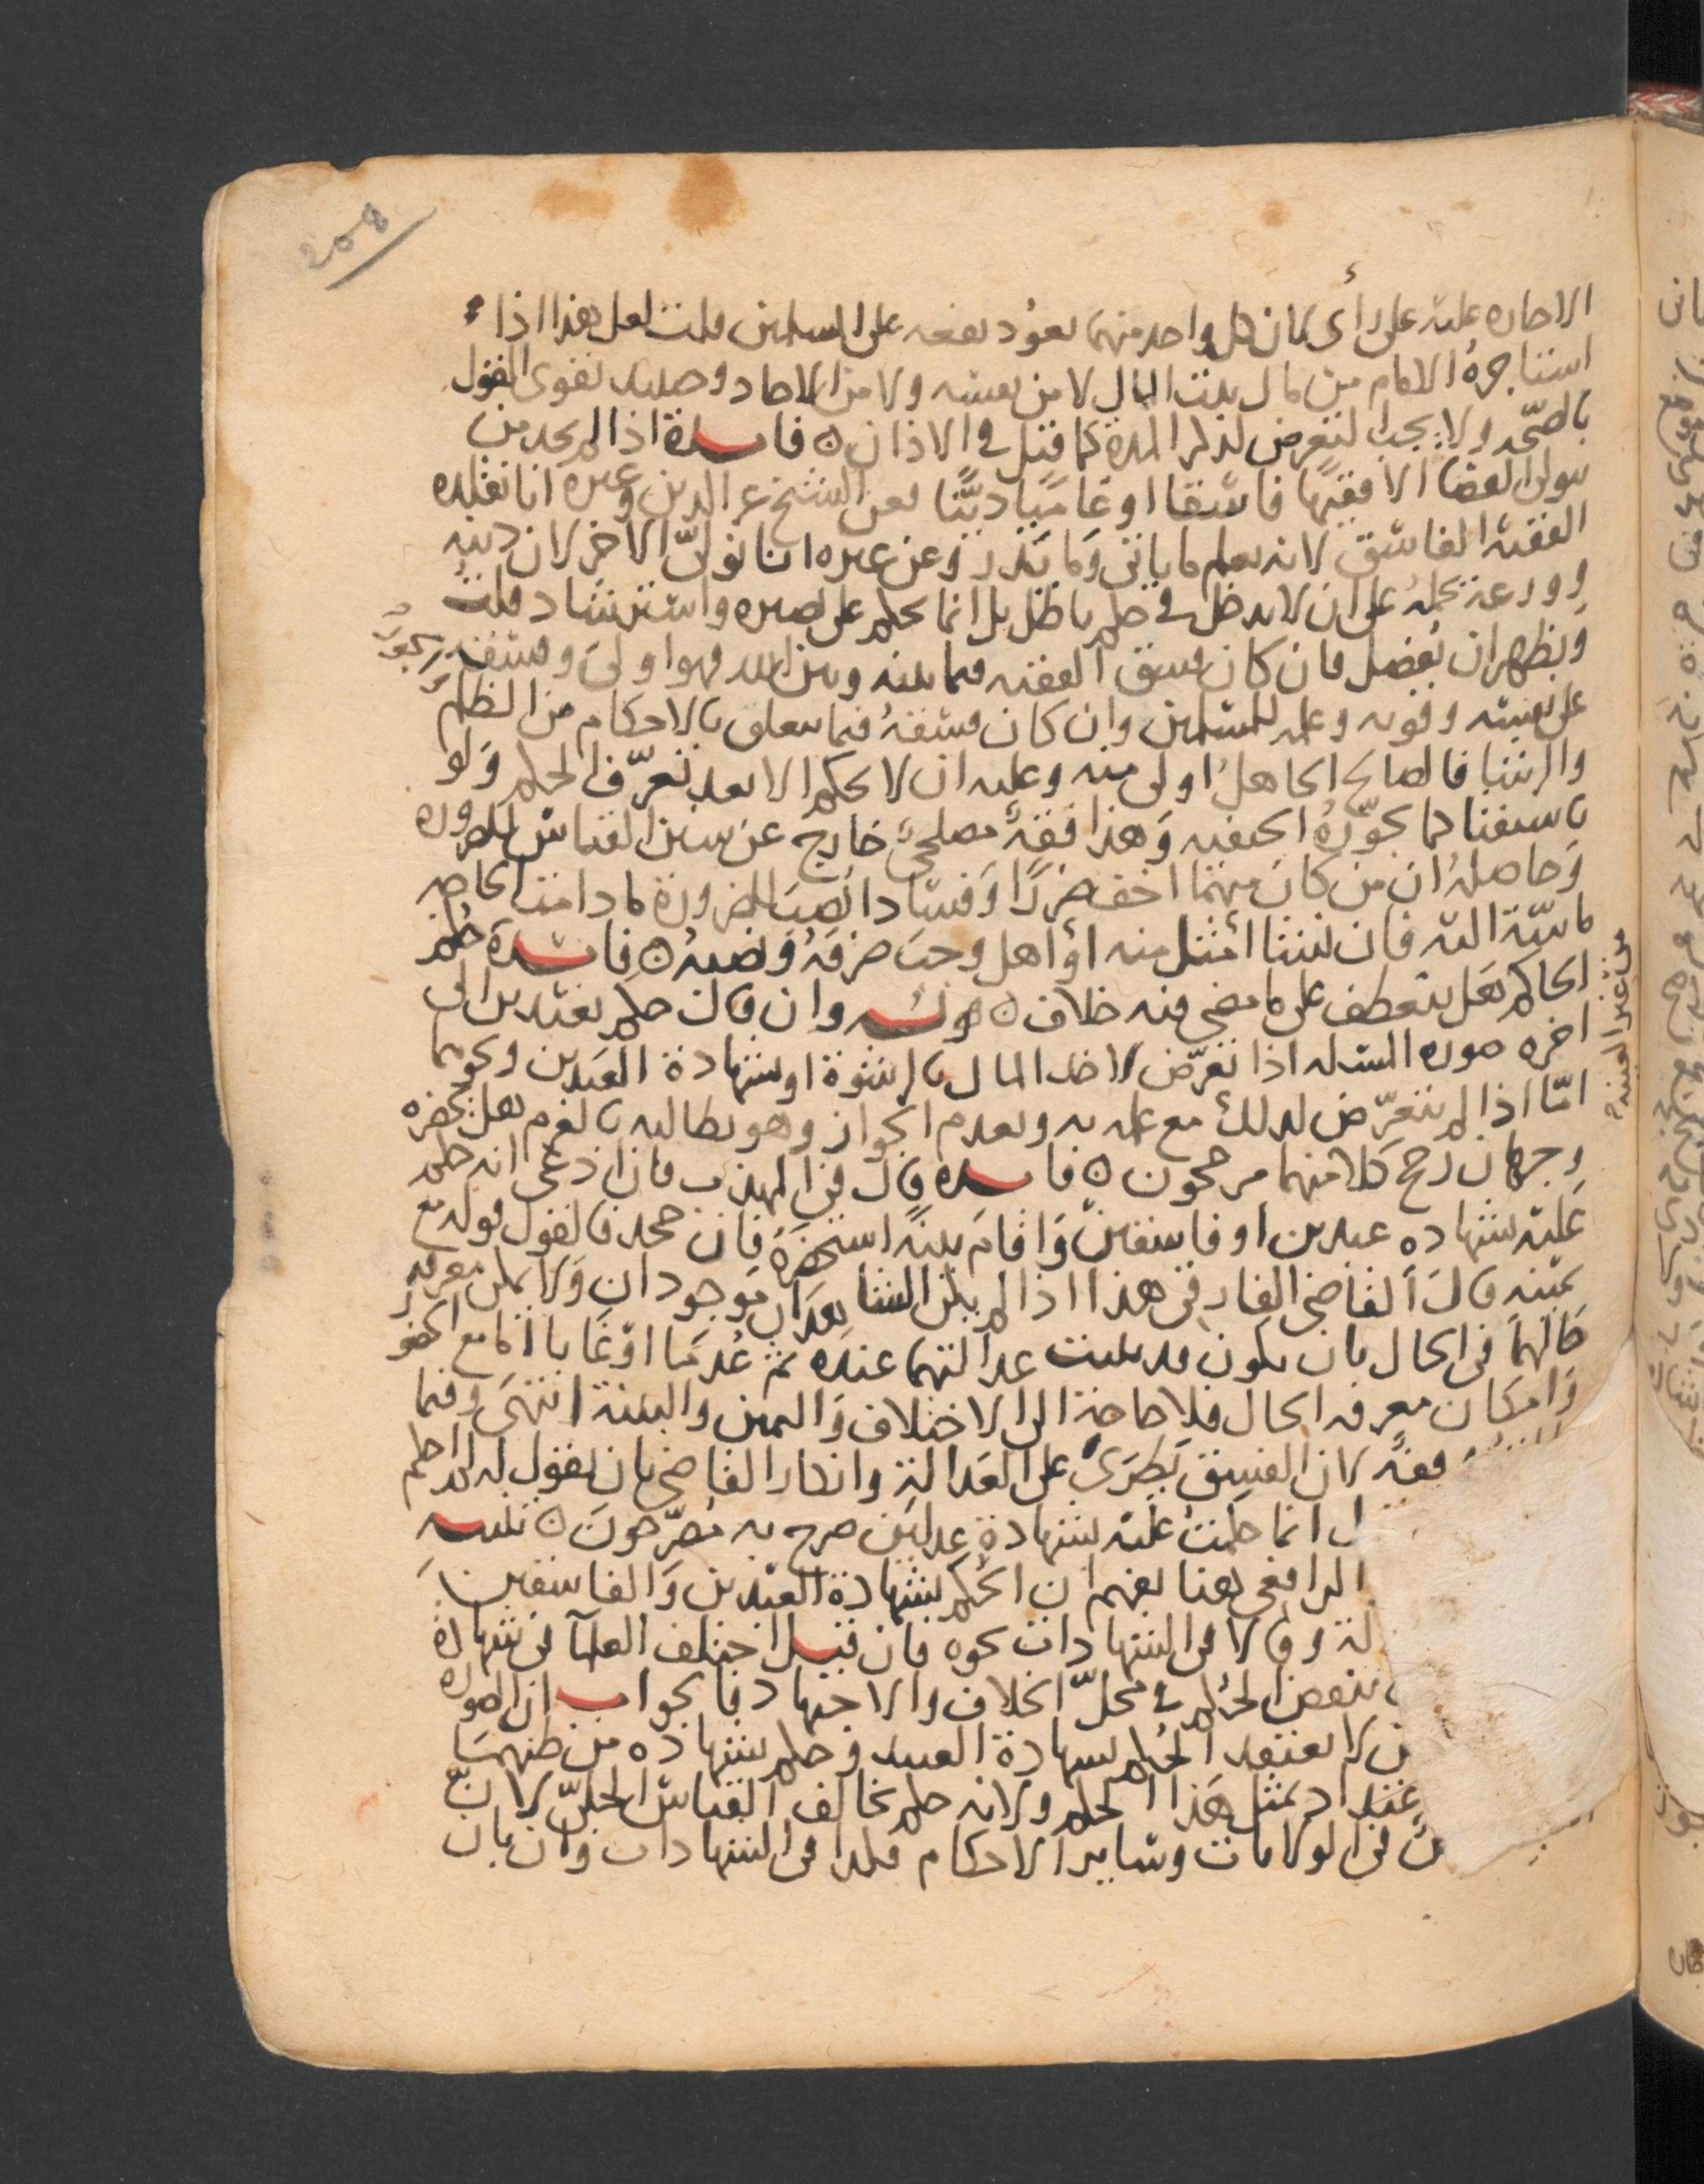 الاجاره عليه على رأى فان كل واحد منهما يعود نفعه على المسلمين قلت لعل هذا اذا
استاجره الامام من مال بيت المال لا من نفسه ولا من الاحاد وحينئذ تقوى القول
بالصحّه ولا يجب التعرض لذكر المدة كما قيل فى الاذان ه فايدة اذا لم يجد من
يولى القضا الا فقيها فاسقا او عاميا ديّنا فعن الشيخ عز الدين وغيره انا نقلد
الفقيه الفاسق لانه يعلم ما ياتى وما يذر وعن غيره انا نولّى الاخر لان دينه
وورعه يحمله على ان لا يدخل فى حكم باطل بل انما يحكم على بصيره واسترشاد قلت
ويظهر ان يفصل فان كان فسق الفقيه فيما بينه وبين الله فهو اولى وفسقه
على نفسه وقوته وعلمه للمسلمين وان كان فسقه فيما يتعلق بالاحكام من الظلم
والرشا فالصالح الجاهل اولى منه وعليه ان لا يحكم الا بعد تعرّف الحكم ولو
باستفتا كما يجوّزه الحنفيه وهذا فقه مصلحى خارج عن سنن القياس للضروره
وحاصله ان من كان منهما اخف ضررا وفسادا نصب للضرورة ما دامت الحاجه
ماسّة اليه فان نشا امثل منه او اهل وجب صرفه ونصبه ه فايدة حكم
الحاكم هل ينعطف على ما مضى فيه خلاف ه قوله وان قال حكم بعبدين الى
اخره صوره المسئله اذا تعرّض لاخذ المال بالرشوة او شهادة العبدين ونحوهما
امّا اذا لم يتعرّض لذلك مع علمه به وبعدم الجواز وهو يطالبه بالغرم هل يحضره
وجهان رجح كلا منهما مرجحون ه فايده قال فى المهذب فان ادعى انه حكم
عليه بشهاده عبدين او فاسقين واقام بينة استحضره فان جحد فالقول قوله مع
يمينه قال القاضى الفارقى هذا اذا لم يكن الشاهدان موجودان ولا يمكن معرفه
حالهما فى الحال بان يكون قد ثبتت عدالتهما عنده ثم عدما او غابا اما مع الحضور
وامكان معرفه الحال فلا حاجة الى الاختلاف واليمين والبينة انتهى وفيما
وقفة لان الفسق يطرى على العدالة وانكار القاضى بان يقول له لم احكم
انما حكمت عليه بشهادة عدلين صرح به مصرّحون ه تنبيه
الرافعى هنا يفهم ان الحكم بشهادة العبدين والفاسقين
وقالا فى الشهادات نحوه فان قيل اختلف العلما فى شهادة
ينقض الحكم فى محلّ الخلاف والاجتهاد فالجواب ان الصوره
لا يعتقد الحكم بشهادة العبيد وحكم بشهاده من ظنهما
بمثل هذا الحكم ولانه حكم يخالف القياس الجلىّ لانّ
فى الولايات وسائر الاحكام فكذا فى الشهادات وان بان
من غير البينة